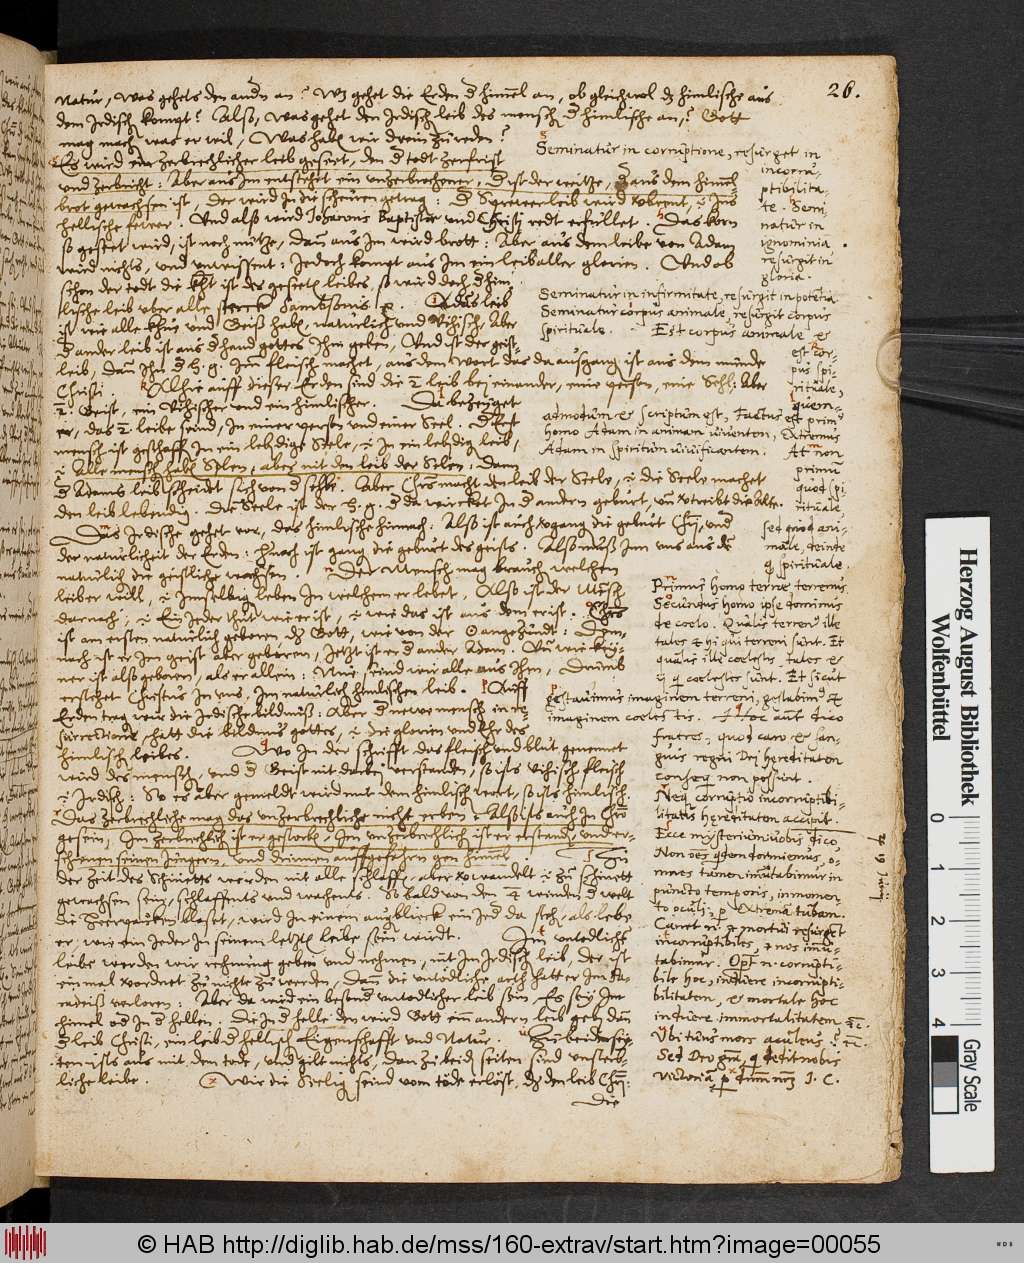 26.
Natur, was gehets den andn an? Wz gehet die Erden d himel an, ob gleichwol dz himlische aus
dem Jrdisch kompt? Also, was gehet den Jrdisch leib des mensch d himlische an? Gott
mag mach was er wil, Was hab wir drein zu reden?
Es wird ein zerbrechlicher leib geseet, den d todt zerfrist
und zerbricht: Aber aus Jm entstehet ein unzerbrochener, d ist der weitze, d aus dem himel
brot gewachsen ist, der wird Jn die scheuren getrag: d Spreverleib wird verbrent, Jns
hellische fewer. Und also wird Johannis Baptistae und Christi redt erfüllet. Das korn
so geseet wird, ist noch nütze, dan aus Jm wird brott: Aber aus dem leibe von Adam
wird nichts, und verwesent: Jedoch kompt aus Jm ein leib aller glorien. Und ob
schon der todt die krafft ist des geseet leibes, so wird doch d him-
lische leib uber alle stercke Sambsonis. Das leib
ist wie alle khue und Geiss hab, natürlich und Vihisch, Aber
d ander leib ist aus d hand gottes Jhm geben, Und ist der geist-
leib, dan Jhn d h. g. Jm fleisch machet, aus dem Wort das da ausgang ist aus dem munde
Christi. Alhie auff dieser Erden sind die 2 leib bei einander, eine person, eine Sehl: Aber
2 Geist, ein Vihischer und ein himlischer. Da bezeuget
er, das 2 leibe seind, Jn einer person und einer Seel. d Erst
mensch ist geschaff Jn ein lebdige Seele, Jn ein lebdig leib,
Alle mensch hab Selen, aber nit den leib der Selen: Dann
d Adams leib scheidet sich von d sehle. Aber Chrs macht den leib der Seele, die Seele machet
den leib lebendig. Die Seele ist der h. g. d da wircket Jn d andern geburt, und vertreibt die alte.
Das Jrdische gehet vor, das himlische hinnach: Also ist auch vorgang die geburt Chri, und
der natürlicheit der Erden: hinach ist gang die geburt des geists. Also muss Jnn uns aus dem
natürlich die geistliche wachsen. Der Mensch mag brauch welchen
leiber will, Jmselbig leben Jn welchem er lebet, Also ist der Mensch
darnach, Ein Jeder thut wie er ist, wie das ist aus dem er ist. Chrs
ist am ersten natürlich geboren, dz Gott, wie von der Sonne angezundt: Dem-
nach ist er Jm geist aber geboren, Jetzt ist er d ander Adam. Nu wie kei-
ner ist also geboren, als er allein: Nun seind wir alle aus Jhm, Drumb
erstehet Christus Jn uns, Jm natürlich himlischen leib. Auff
Erden trag wir die Jrdische bildnüss: Aber d newe mensch in re-
surrectione, hatt die bildnus gottes, die glorien und Ehr des
himlisch leibes. Wo Jn der schrifft das fleisch und blut genennet
wird des mensch, und d Geist nit darbei verstanden, so ists Vihisch fleisch
Jrdisch: So es aber gemeldt wird mit dem himlisch wort, so ists himlisch.
Das zerbrechliche mag das unzerbrechliche nicht erben: Also ists auch Jn Chro
gesein, Jm zerbrechlich ist er gestorb: Jm unzerbrechlich ist er erstand, und er-
schienen seinen Jüngern, und drinnen auffgefahrn gen himel. Zu
der Zeit des Schnitts werden nit alle schlaff, aber verwandelt zum schnitt
gewachsen sein, schlaffents und wachents. So bald von den 4 winden d welt
die heerpaucken blasent, wird Jn einem augblick ein Jed da steh, als lebe
er, wie ein Jeder Jn seinem letzt leibe sein würdt. Jm untodliche
leibe werden wir rechnung geben und nehmen, nit Jn Jrdisch leib, der ist
einmal verordnet zu nichte zu werden, Dan die untödliche arch hatt er Jm Pa-
radeiss verloren: Aber da wird ein bestend untodlicher leib sein, Es sey Jm
himel oder Jn d hellen. Die Jn d helle den wird Gott einen andern leib geb dan
d leib Christi, ein leib d hellisch Eigenschafft und Natur. Zu beiden sey-
ten ists aus mit dem tode, und gilt nichts, Dan zu beid seiten sind unsterb-
liche leibe. Wir die Seelig seind vom tode erlöst, dz den leib Chri:
die
Seminatur in corruptione, resurget in
incorru-
ptibilita-
te. Semi-
natur in
ignominia
resurgit in
gloria.
Seminatur in infirmitate, resurgit in potentia
Seminatur corpus animale, resurgit corpus
spirituale. Est corpus animale et
est cor-
pus spi-
rituale,
quem-
admodum et scriptum est, Factus est prim
homo Adam in animam viventem, Extremus
Adam in spiritum vivificantem. At non
primu
quod spi-
rituale,
sed quod ani-
male, deinde
q spirituale.
Primus homo terrae terrenus.
Secundus homo ipse dominus
de coelo. Qualis terrens ille
tales et hi qui terreni sunt. Et
qualis ille coelestis, tales et
ij q coelestes sunt. Et sicut
gestavimus imaginem terreni, gestabim et
imaginem coelestis. Hoc aut dico
fratres, quod caro et san-
guis regnu Dei hereditatem
conseq non possint.
Neq corruptio incorruptibi-
litatis hereditatem accipit.
Ecce mysterium vobis dico,
Non oes qdem dormiemus, o-
mnes tamen immutabimur in
puncto temporis, in momen-
to oculi, p Extrema tubam.
Canet n. et mortui resurget
incorruptibiles, et nos imu-
tabimur. Oport n. corrupti-
bile hoc, induere incorrupti-
bilitatem, et mortale hoc
induere immortalitatem etc.
Ubi tuus mors aculeus?
Sed Deo gra, q dedit nobis
victoria p dnm nrm J. C.
Herzog August Bibliothek
Wolfenbüttel
0 1 2 3 4
Gray Scale
© HAB http://diglib.hab.de/mss/160-extrav/start.htm?image=00055
WDB